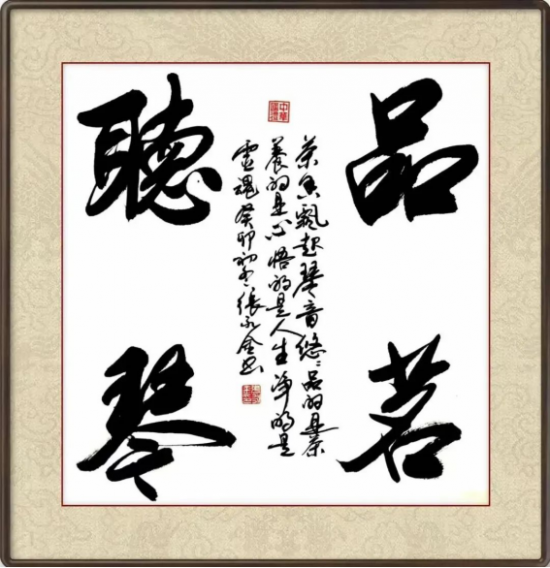 品茗
聽琴
茶香飄起琴音悠悠品的是茶
養的是心悟的是人生净的是
靈魂癸卯初冬張永金书
中華